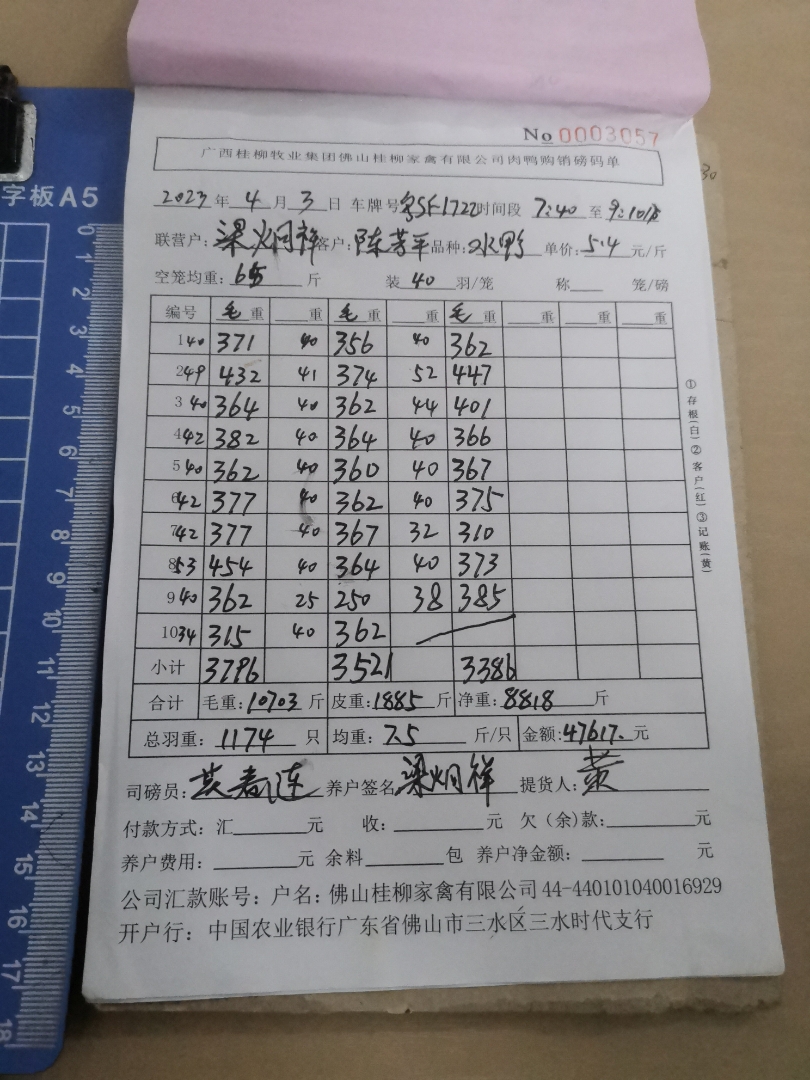 No 0003057
广西桂柳牧业集团佛山桂柳家禽有限公司肉鸭购销磅码单
2023 年 4 月 3 日 车牌号 粤SF1722 时间段 7:40 至 9:10
联营户: 梁炳祥 客户: 陈芳平 品种: 水鸭 单价: 5.4 元/斤
空笼均重: 65 斤 装 40 羽/笼 称 笼/磅
编号 毛重 重 毛重 重 毛重 重 重 重
1 40 371 40 356 40 362
2 49 432 41 374 52 447
3 40 364 40 362 44 401
4 42 382 40 364 40 366
5 40 362 40 360 40 367
6 42 377 40 362 40 375
7 42 377 40 367 32 310
8 53 454 40 364 40 373
9 40 362 25 250 38 385
10 34 315 40 362
小计 3796 3521 3386
合计 毛重: 10703 斤 皮重: 1885 斤 净重: 8818 斤
总羽重: 1174 只 均重: 7.5 斤/只 金额: 47617. 元
司磅员: 养户签名 梁炳祥 提货人: 黄
付款方式: 汇 元 收: 元 欠(余)款: 元
养户费用: 元 余料 包 养户净金额: 元
公司汇款账号: 户名: 佛山桂柳家禽有限公司 44-440101040016929
开户行: 中国农业银行广东省佛山市三水区三水时代支行
①存根(白)②客户(红)③记账(黄)
字板 A5
0 1 2 3 4 5 6 7 8 9 10 11 12 13 14 15 16 17 18
30